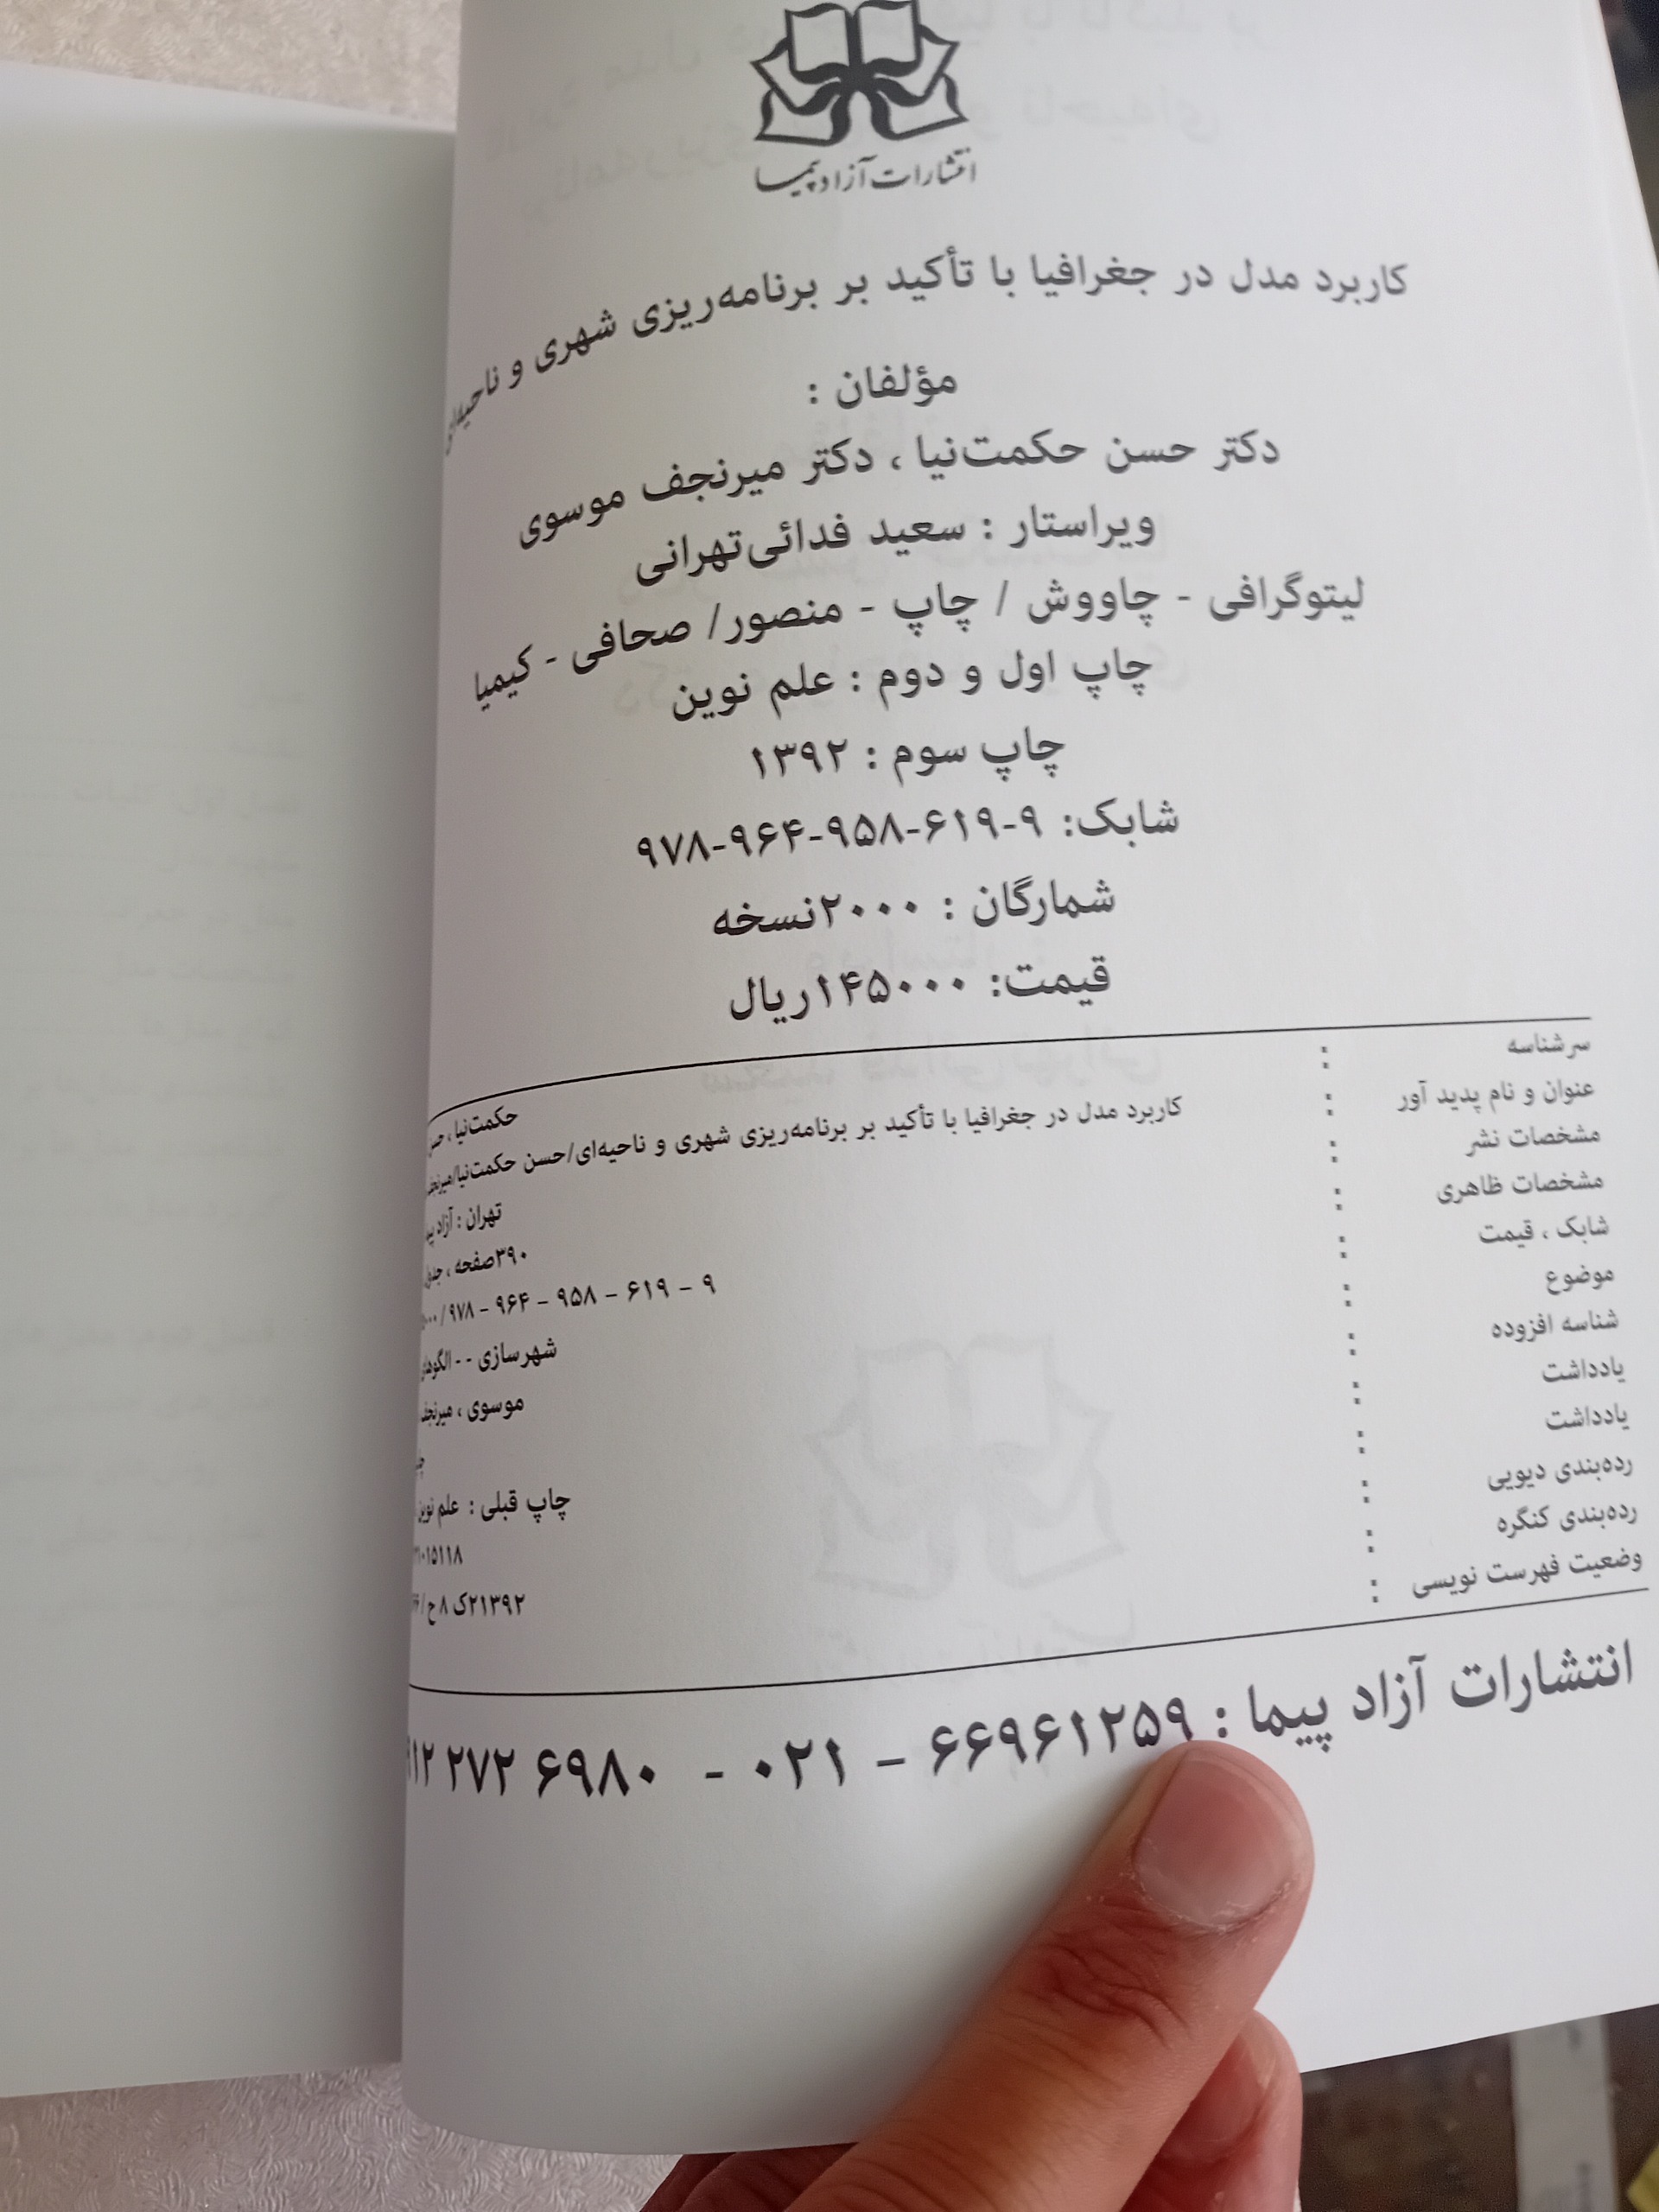 انتشارات آزاد پیما
کاربرد مدل در جغرافیا با تأکید بر برنامه‌ریزی شهری و ناحیه‌ای
مؤلفان :
دکتر حسن حکمت‌نیا ، دکتر میرنجف موسوی
ویراستار : سعید فدائی‌تهرانی
لیتوگرافی - چاووش / چاپ - منصور/ صحافی - کیمیا
چاپ اول و دوم : علم نوین
چاپ سوم : ۱۳۹۲
شابک: ۹-۶۱۹-۹۵۸-۹۶۴-۹۷۸
شمارگان : ۲۰۰۰نسخه
قیمت: ۱۴۵۰۰۰ریال
سرشناسه : حکمت‌نیا ،
عنوان و نام پدید آور : کاربرد مدل در جغرافیا با تأکید بر برنامه‌ریزی شهری و ناحیه‌ای/حسن حکمت‌نیا/
مشخصات نشر : تهران : آزاد
مشخصات ظاهری : ۳۹۰صفحه ،
شابک ، قیمت : ۹ – ۶۱۹ – ۹۵۸ – ۹۶۴ – ۹۷۸ /
موضوع : شهرسازی - -
شناسه افزوده : موسوی ،
یادداشت :
یادداشت : چاپ قبلی : علم نوین
رده‌بندی دیویی :
رده‌بندی کنگره : ۲۱۳۹۲ک ۸ ح/
وضعیت فهرست نویسی :
انتشارات آزاد پیما : ۶۶۹۶۱۲۵۹ – ۰۲۱ - ۶۹۸۰ ۲۷۲